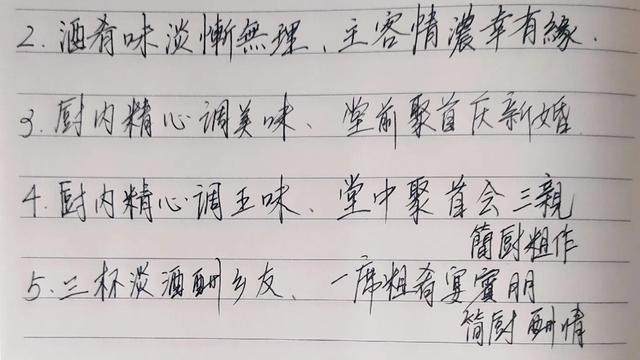 2. 酒肴味淡慚無理、主客情濃幸有緣.
3. 厨内精心调美味、堂前聚首庆新婚
4. 厨内精心调五味、堂中聚首会三親
簡厨粗作
5. 三杯淡酒酬乡友、一席粗肴宴賓朋
简厨酬情